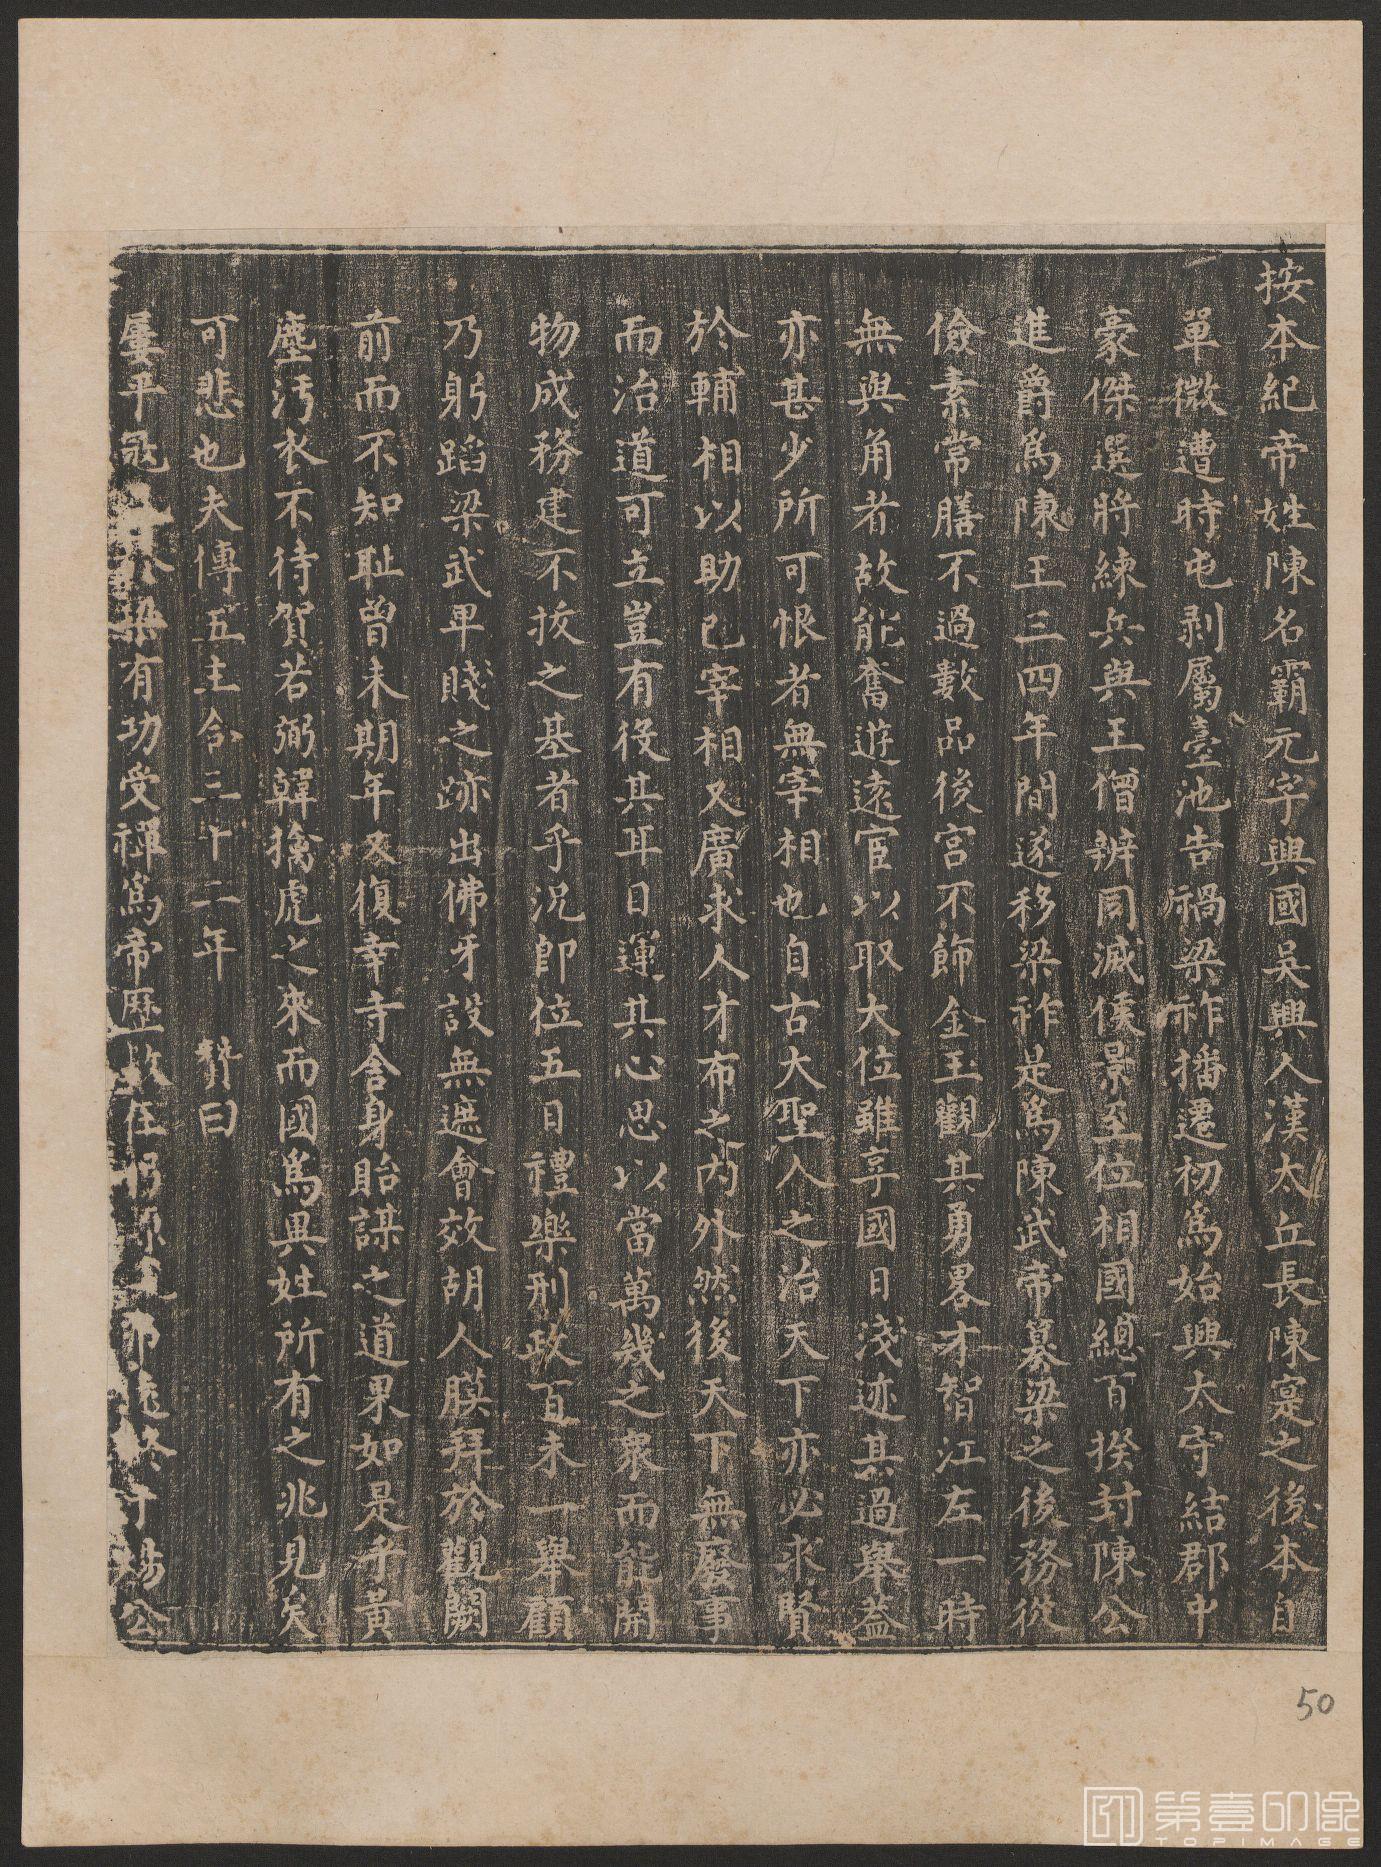 按本紀帝姓陳名霸元字興國吳興人漢太丘長陳寔之後本自
單微遭時屯剥屬臺池告禍梁祚播遷初爲始興太守結郡中
豪傑選將練兵與王僧辨同滅侯景至位相國總百揆封陳公
進爵爲陳王三四年間遂移梁祚是爲陳武帝篡梁之後務從
儉素常膳不過數品後宫不飾金玉觀其勇畧才智江左一時
無與角者故能奮遊遠宦以取大位雖享國日淺迹其過舉蓋
亦甚少所可恨者無宰相也自古大聖人之治天下亦必求賢
於輔相以助己宰相又廣求人才布之内外然後天下無廢事
而治道可立豈有役其耳目運其心思以當萬幾之衆而能開
物成務建不拔之基者乎況即位五日禮樂刑政百未一舉顧
乃躬蹈梁武卑賤之跡出佛牙設無遮會效胡人膜拜於觀闕
前而不知耻曾未期年又復幸寺舍身貽謀之道果如是乎黃
塵汚衣不待賀若弼韓擒虎之來而國爲異姓所有之兆見矣
可悲也夫傳五主合三十二年 贊曰
屢平冦 於梁有功受禪爲帝歷數在 公
第壹印像
TOPIMAGE
50